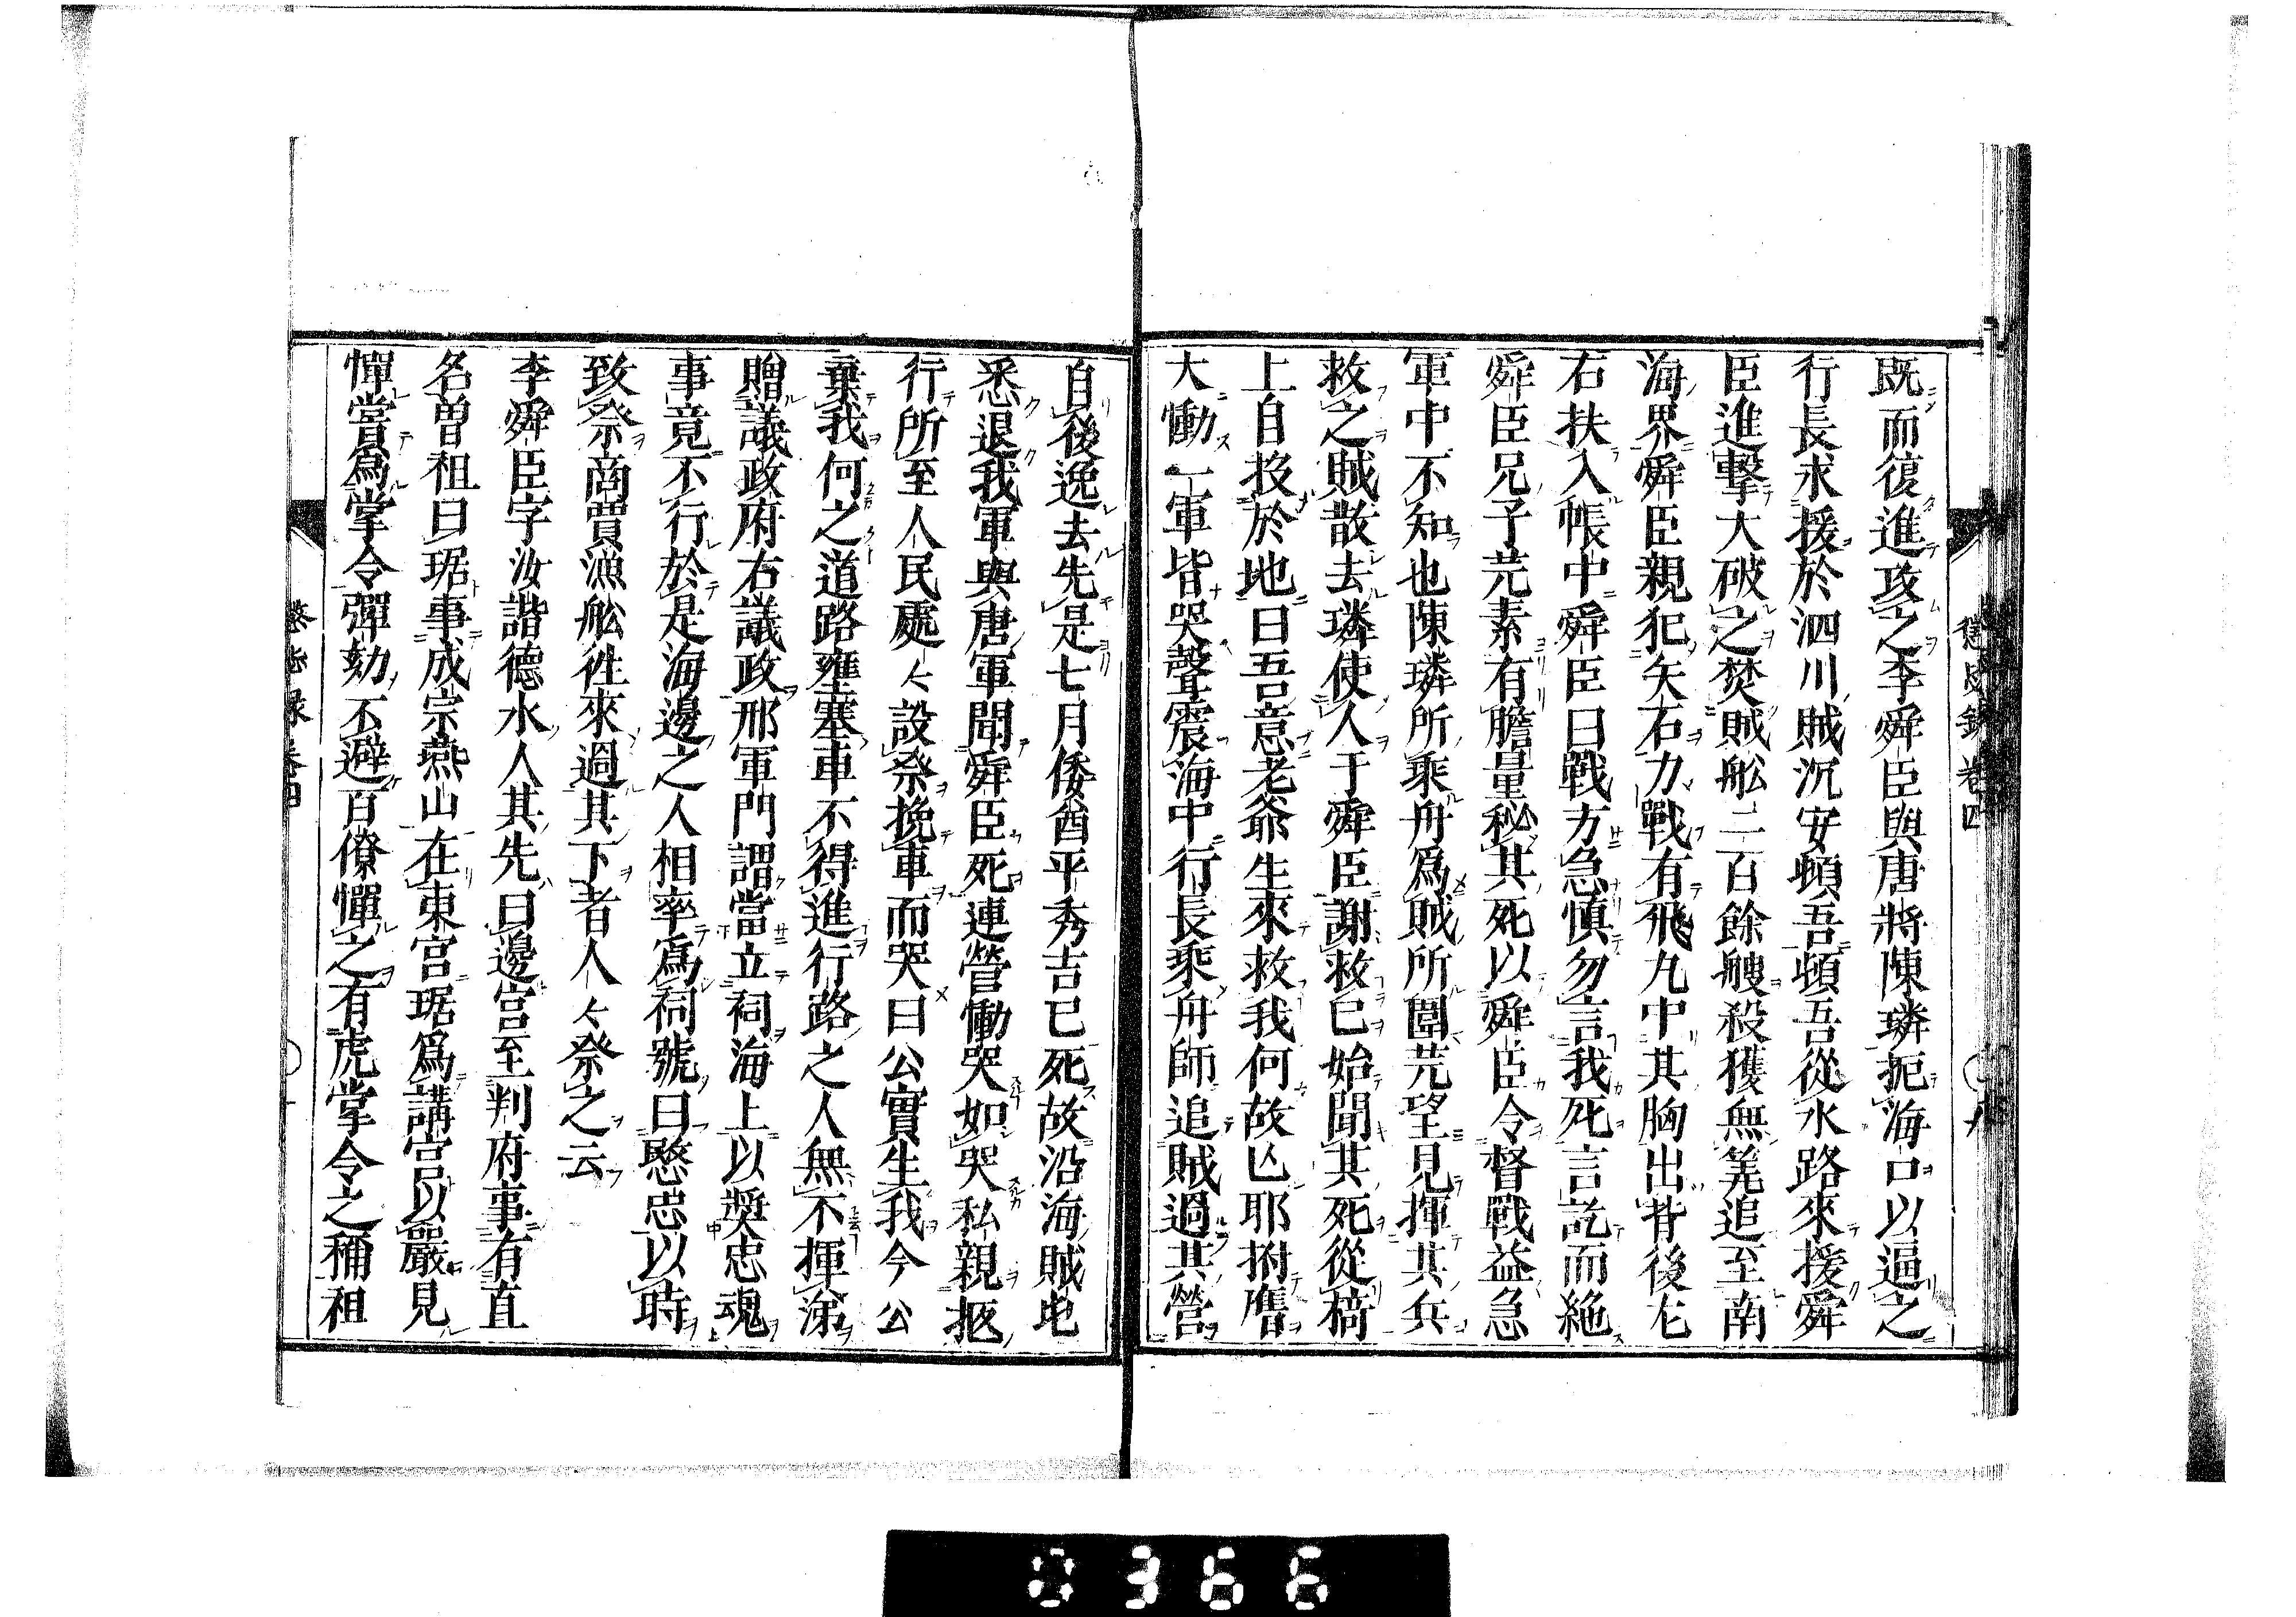 既而復進攻之李舜臣與唐將陳璘扼海口以逼之
行長求援於泗川賊沉安頓吾頓吾從水路來援舜
臣進擊大破之焚賊舩二百餘艘殺獲無筭追至南
海界舜臣親犯矢石力戰有飛丸中其胸出背後左
右扶入帳中舜臣曰戰方急慎勿言我死言訖而絶
舜臣兄子芫素有膽量秘其死以舜臣令督戰益急
軍中不知也陳璘所乘舟為賊所圍芫望見揮其兵
救之賊散去璘使人于舜臣謝救已始聞其死從椅
上自投於地曰吾意老爺生來救我何故亡耶拊膺
大慟一軍皆哭聲震海中行長乘舟師追賊過其營
自後逸去先是七月倭酋平秀吉已死故沿海賊屯
悉退我軍與唐軍聞舜臣死連營慟哭如哭私親柩
行所至人民處々設祭挽車而哭曰公實生我今公
棄我何之道路壅塞車不得進行路之人無不揮涕
贈議政府右議政邢軍門謂當立祠海上以奬忠魂
事竟不行於是海邊之人相率為祠號曰愍忠以時
致祭商賈漁舩往來過其下者人々祭之云
李舜臣字汝諧德水人其先曰邊官至判府事有直
名曽祖曰琚事成宗燕山在東宮琚為講官以嚴見
憚甞為掌令彈劾不避百僚憚之有虎掌令之稱祖
懲毖録 卷四
0366